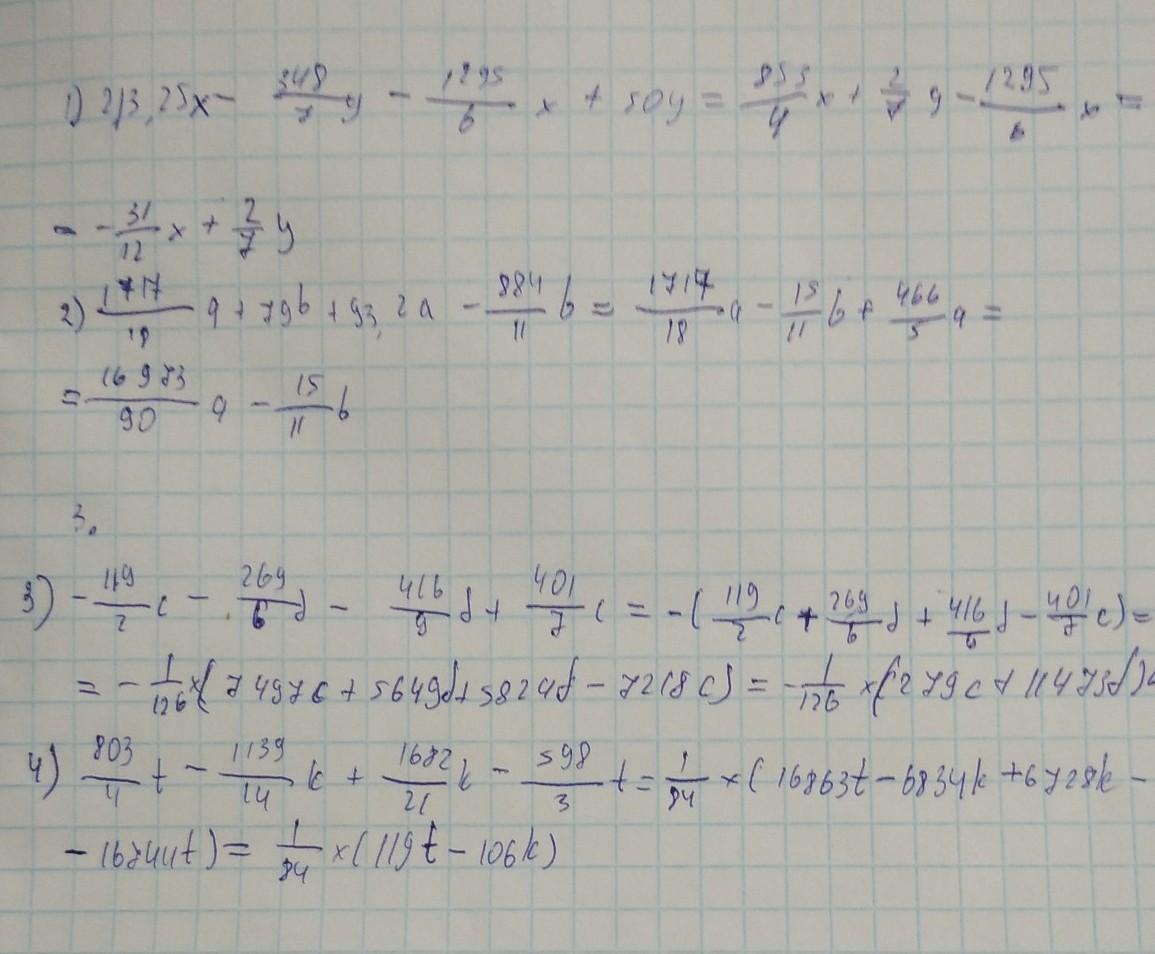 1) 213,25x - 348/7 y - 1295/6 x + 50y = 853/4 x + 2/7 y - 1295/6 x =
= -31/12 x + 2/7 y
2) 1717/18 a + 79b + 93,2a - 884/11 b = 1717/18 a - 15/11 b + 466/5 a =
= 16973/90 a - 15/11 b
3.
3) -119/2 c - 269/6 d - 416/9 d + 401/7 c = -(119/2 c + 269/6 d + 416/6 d - 401/7 c) =
= -1/126 × (7497c + 5649d + 5824d - 7218c) = -1/126 × (279c + 11473d)
4) 803/4 t - 1139/14 k + 1682/21 k - 598/3 t = 1/84 × (16863t - 6834k + 6728k -
- 16744t) = 1/84 × (119t - 106k)